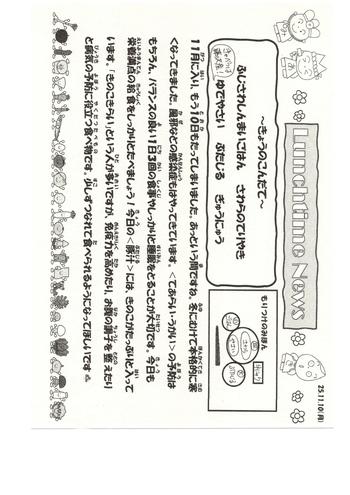 Lunchtime News
25.11.10(月)
～きょうのこんだて～
ふじさわしんまいごはん　さわらのてりやき
ゆでやさい　ぶたじる　ぎゅうにゅう
もりつけのみほん
11月に入り、もう10日もたってしまいました。あっという間ですね。冬にむけて本格的に寒
くなってきました。風邪などの感染症もはやってきています。＜てあらい・うがい＞の予防は
もちろん、バランスの良い1日3回の食事やしっかりと睡眠をとることが大切です。今日も
栄養満点の給食をしっかりとたべましょう！今日の＜豚汁＞には、きのこがたっぷりと入って
います。「きのこきらい」という人が多いですが、免疫力を高めたり、お腹の調子を整えたり
と病気の予防に役立つ食べ物です。少しずつなれて食べられるようになってほしいです